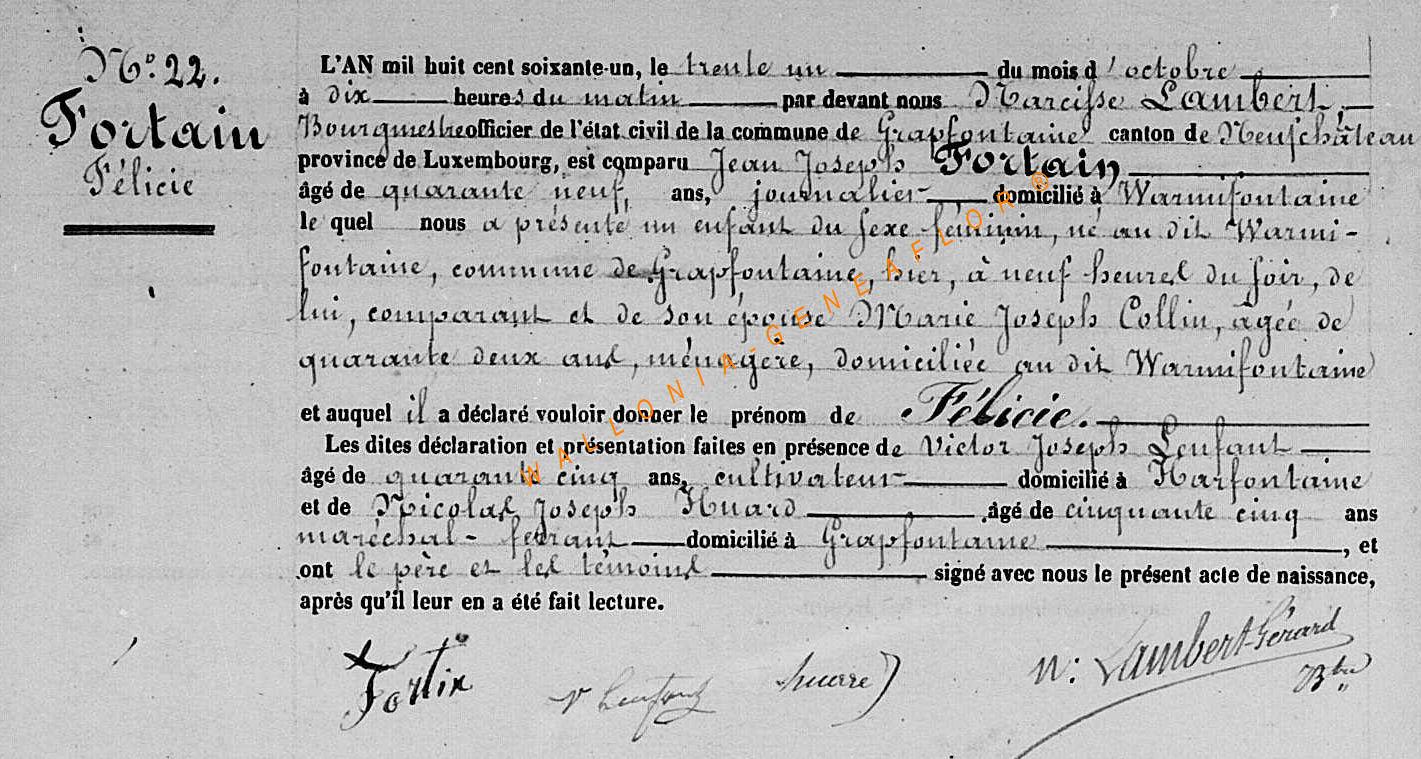 Nº. 22.
Fortain
Félicie
L'AN mil huit cent soixante-un, le trente un du mois d'octobre
à dix heures du matin par devant nous Narcisse Lambert,
Bourgmestre officier de l'état civil de la commune de Grapfontaine canton de Neufchâteau
province de Luxembourg, est comparu Jean Joseph Fortain,
âgé de quarante neuf, ans, journalier domicilié à Warmifontaine
le quel nous a présenté un enfant du sexe féminin, né au dit Warmi-
fontaine, commune de Grapfontaine, hier, à neuf heures du soir, de
lui, comparant et de son épouse Marie Joseph Collin, agée de
quarante deux ans, ménagère, domiciliée au dit Warmifontaine
et auquel il a déclaré vouloir donner le prénom de Félicie.
Les dites déclaration et présentation faites en présence de Victor Joseph Lenfant
âgé de quarante cinq ans, cultivateur domicilié à Harfontaine
et de Nicolas Joseph Huard âgé de cinquante cinq ans
maréchal-ferrant domicilié à Grapfontaine, et
ont le père et les témoins signé avec nous le présent acte de naissance,
après qu'il leur en a été fait lecture.
Fortin V Lenfant N: Lambert-Gérard
Btre
WALLONIA-GENEAFLOR®